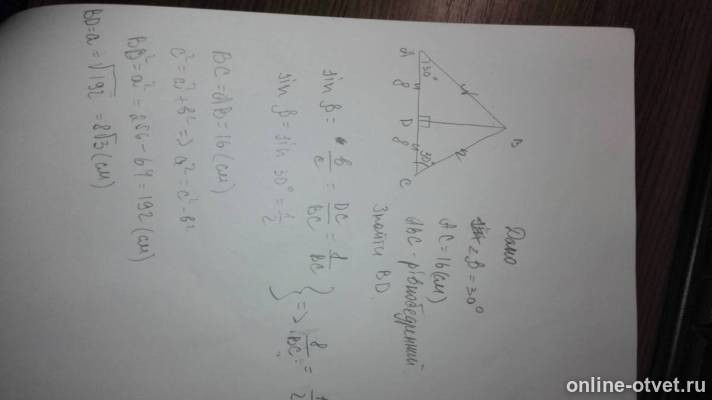 Дано
∠B = 30°
AC = 16 (см)
ABC - рівнобедренний
Знайти BD.
A
30°
8
D
8
30°
C
B
sin β = b/c = DC/BC = 8/BC
sin β = sin 30° = 1/2
} => 8/BC = 1/2
BC = AB = 16 (см)
c² = a² + b² => a² = c² - b²
BD² = a² = 256 - 64 = 192 (см)
BD = a = √192 = 8√3 (см)
online-otvet.ru